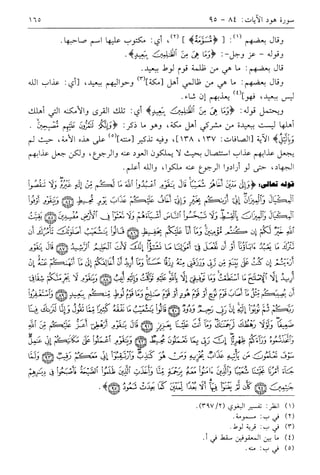 سورة هود الآيات: ٨٤ - ٩٥ ١٦٥
وقال بعضهم (١): [﴿مُّسَوَّمَةً﴾] (٢)، أي: مكتوب عليها اسم صاحبها.
وقوله - عز وجل -: ﴿وَمَا هِيَ مِنَ ٱلظَّٰلِمِينَ بِبَعِيدٖ﴾.
قال بعضهم: ما هي من ظلمة قوم لوط ببعيد.
وقال بعضهم: ما هي من ظالمي أهل [مكة] (٣) وحواليهم ببعيد، [أي: عذاب الله
ليس ببعيد، فهو] (٤) يعذبهم إن شاء.
ويحتمل قوله: ﴿وَمَا هِيَ مِنَ ٱلظَّٰلِمِينَ بِبَعِيدٖ﴾ أي: تلك القرى والأمكنة التي أهلك
أهلها ليست ببعيدة من مشركي أهل مكة، وهو ما ذكر: ﴿وَإِنَّكُمۡ لَتَمُرُّونَ عَلَيۡهِم مُّصۡبِحِينَ .
وَبِٱلَّيۡلِ﴾ الآية [الصافات: ١٣٧، ١٣٨]، وفيه تذكير [منه] (٥) على هذه الأمة، حيث لم
يجعل عذابهم عذاب استئصال بحيث لا يملكون العود عنه والرجوع، ولكن جعل عذابهم
الجهاد، حتى لو أرادوا الرجوع عنه ملكوا، والله أعلم.
قوله تعالى: ﴿وَإِلَىٰ مَدۡيَنَ أَخَاهُمۡ شُعَيۡبٗاۚ قَالَ يَٰقَوۡمِ ٱعۡبُدُواْ ٱللَّهَ مَا لَكُم مِّنۡ إِلَٰهٍ غَيۡرُهُۥۖ وَلَا تَنقُصُواْ
ٱلۡمِكۡيَالَ وَٱلۡمِيزَانَۖ إِنِّيٓ أَرَىٰكُم بِخَيۡرٖ وَإِنِّيٓ أَخَافُ عَلَيۡكُمۡ عَذَابَ يَوۡمٖ مُّحِيطٖ ٨٤ وَيَٰقَوۡمِ أَوۡفُواْ
ٱلۡمِكۡيَالَ وَٱلۡمِيزَانَ بِٱلۡقِسۡطِۖ وَلَا تَبۡخَسُواْ ٱلنَّاسَ أَشۡيَآءَهُمۡ وَلَا تَعۡثَوۡاْ فِي ٱلۡأَرۡضِ مُفۡسِدِينَ ٨٥ بَقِيَّتُ
ٱللَّهِ خَيۡرٞ لَّكُمۡ إِن كُنتُم مُّؤۡمِنِينَۚ وَمَآ أَنَا۠ عَلَيۡكُم بِحَفِيظٖ ٨٦ قَالُواْ يَٰشُعَيۡبُ أَصَلَوٰتُكَ تَأۡمُرُكَ أَن نَّتۡرُكَ
مَا يَعۡبُدُ ءَابَآؤُنَآ أَوۡ أَن نَّفۡعَلَ فِيٓ أَمۡوَٰلِنَا مَا نَشَٰٓؤُاْۖ إِنَّكَ لَأَنتَ ٱلۡحَلِيمُ ٱلرَّشِيدُ ٨٧ قَالَ يَٰقَوۡمِ
أَرَءَيۡتُمۡ إِن كُنتُ عَلَىٰ بَيِّنَةٖ مِّن رَّبِّي وَرَزَقَنِي مِنۡهُ رِزۡقًا حَسَنٗاۚ وَمَآ أُرِيدُ أَنۡ أُخَالِفَكُمۡ إِلَىٰ مَآ أَنۡهَىٰكُمۡ عَنۡهُۚ إِنۡ
أُرِيدُ إِلَّا ٱلۡإِصۡلَٰحَ مَا ٱسۡتَطَعۡتُۚ وَمَا تَوۡفِيقِيٓ إِلَّا بِٱللَّهِۚ عَلَيۡهِ تَوَكَّلۡتُ وَإِلَيۡهِ أُنِيبُ ٨٨ وَيَٰقَوۡمِ لَا يَجۡرِمَنَّكُمۡ شِقَاقِيٓ
أَن يُصِيبَكُم مِّثۡلُ مَآ أَصَابَ قَوۡمَ نُوحٍ أَوۡ قَوۡمَ هُودٍ أَوۡ قَوۡمَ صَٰلِحٖۚ وَمَا قَوۡمُ لُوطٖ مِّنكُم بِبَعِيدٖ ٨٩ وَٱسۡتَغۡفِرُواْ
رَبَّكُمۡ ثُمَّ تُوبُوٓاْ إِلَيۡهِۚ إِنَّ رَبِّي رَحِيمٞ وَدُودٞ ٩٠ قَالُواْ يَٰشُعَيۡبُ مَا نَفۡقَهُ كَثِيرٗا مِّمَّا تَقُولُ وَإِنَّا لَنَرَىٰكَ فِينَا
ضَعِيفٗاۖ وَلَوۡلَا رَهۡطُكَ لَرَجَمۡنَٰكَۖ وَمَآ أَنتَ عَلَيۡنَا بِعَزِيزٖ ٩١ قَالَ يَٰقَوۡمِ أَرَهۡطِيٓ أَعَزُّ عَلَيۡكُم مِّنَ ٱللَّهِ
وَٱتَّخَذۡتُمُوهُ وَرَآءَكُمۡ ظِهۡرِيًّاۖ إِنَّ رَبِّي بِمَا تَعۡمَلُونَ مُحِيطٞ ٩٢ وَيَٰقَوۡمِ ٱعۡمَلُواْ عَلَىٰ مَكَانَتِكُمۡ إِنِّي عَٰمِلٞۖ
سَوۡفَ تَعۡلَمُونَ مَن يَأۡتِيهِ عَذَابٞ يُخۡزِيهِ وَمَنۡ هُوَ كَٰذِبٞۖ وَٱرۡتَقِبُوٓاْ إِنِّي مَعَكُمۡ رَقِيبٞ ٩٣ وَلَمَّا
جَآءَ أَمۡرُنَا نَجَّيۡنَا شُعَيۡبٗا وَٱلَّذِينَ ءَامَنُواْ مَعَهُۥ بِرَحۡمَةٖ مِّنَّا وَأَخَذَتِ ٱلَّذِينَ ظَلَمُواْ ٱلصَّيۡحَةُ فَأَصۡبَحُواْ فِي دِيَٰرِهِمۡ
جَٰثِمِينَ ٩٤ كَأَن لَّمۡ يَغۡنَوۡاْ فِيهَآۗ أَلَا بُعۡدٗا لِّمَدۡيَنَ كَمَا بَعِدَتۡ ثَمُودُ ٩٥﴾.
(١) انظر: تفسير البغوي (٣٩٧/٢).
(٢) في ب: مسمومة.
(٣) في ب: قرية لوط.
(٤) ما بين المعقوفين سقط في أ.
(٥) في ب: منه.